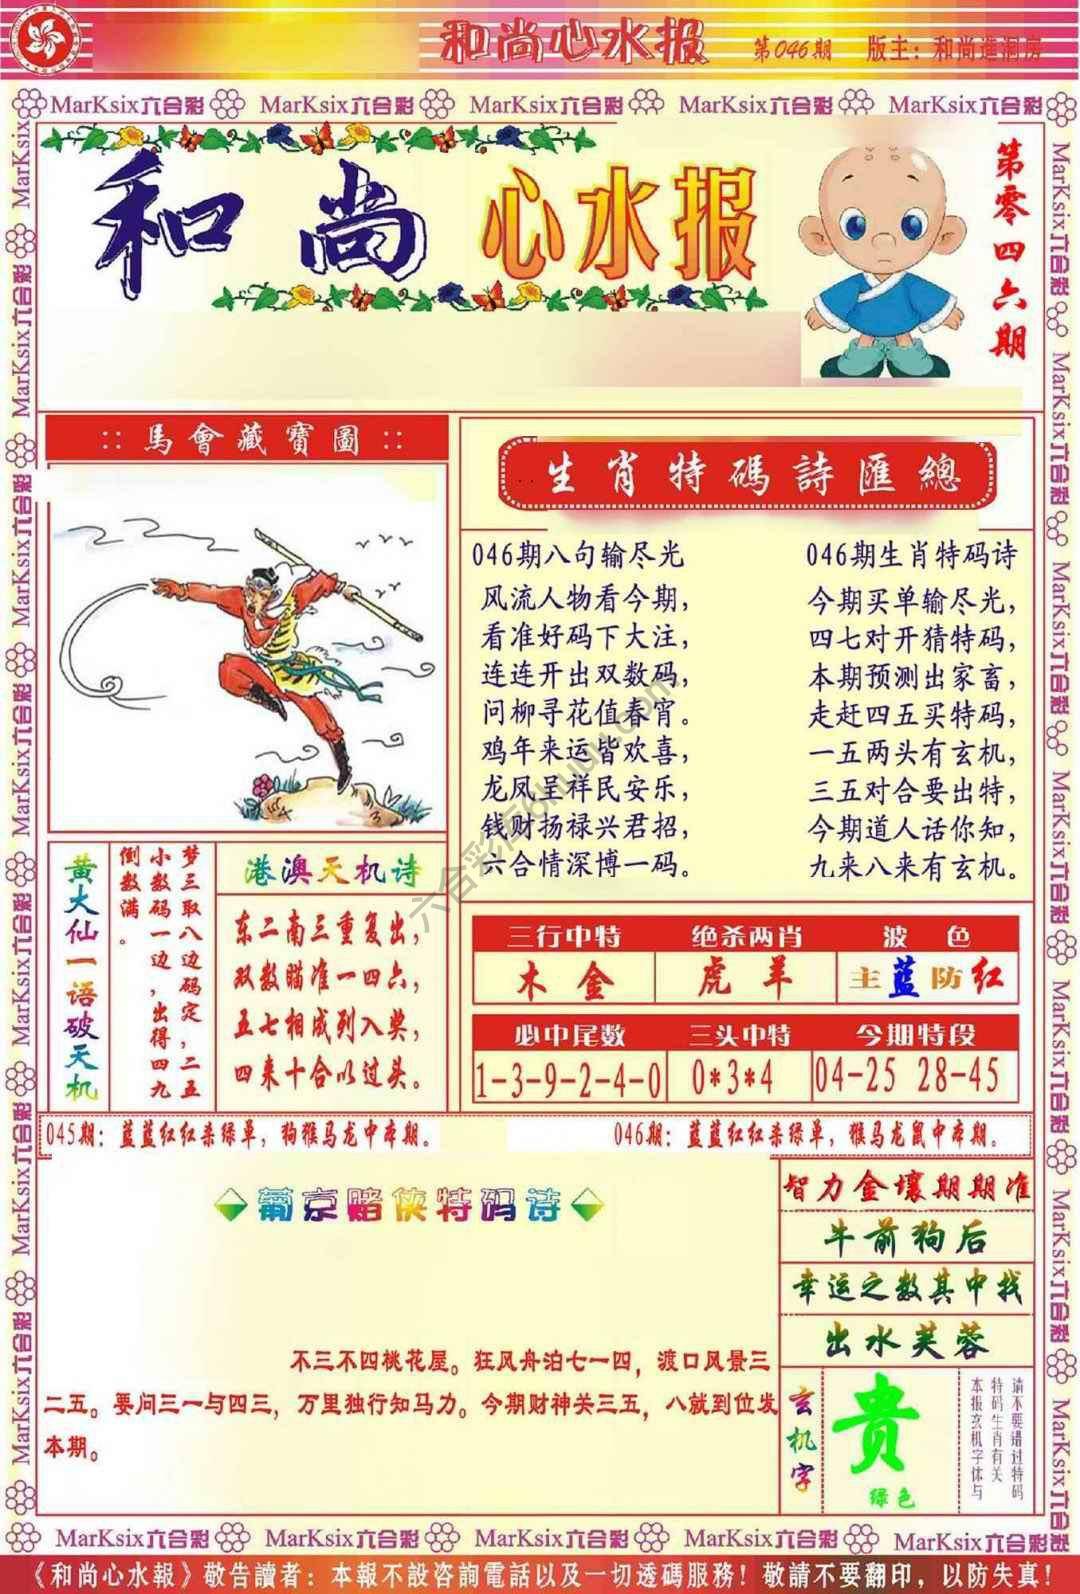 和尚心水报 第046期 版主：和尚進洞房
MarKsix六合彩 MarKsix六合彩 MarKsix六合彩 MarKsix六合彩 MarKsix六合彩
和尚心水报
第零四六期
:: 馬會藏寶圖 ::
生肖特碼詩匯總
046期八句输尽光
风流人物看今期，
看准好码下大注，
连连开出双数码，
问柳寻花值春宵。
鸡年来运皆欢喜，
龙凤呈祥民安乐，
钱财扬禄兴君招，
六合情深博一码。
046期生肖特码诗
今期买单输尽光，
四七对开猜特码，
本期预测出家畜，
走赶四五买特码，
一五两头有玄机，
三五对合要出特，
今期道人话你知，
九来八来有玄机。
黄大仙一语破天机
梦三取八边码定，二五
小数码一边，出得四九
倒数满。
港澳天机诗
东二南三重复出，
双数瞄准一四六，
五七相成列入奖，
四来十合以过头。
三行中特 绝杀两肖 波色
木金 虎羊 主蓝防红
必中尾数 三头中特 今期特段
1-3-9-2-4-0 0*3*4 04-25 28-45
045期：蓝蓝红红杀绿单，狗猴马龙中本期。
046期：蓝蓝红红杀绿单，猴马龙鼠中本期。
葡京赌侠特码诗
不三不四桃花屋。狂风舟泊七一四，渡口风景三
二五。要问三一与四三，万里独行知马力。今期财神关三五，八就到位发
本期。
智力金壤期期准
牛前狗后
幸运之数其中找
出水芙蓉
玄机字
贵
绿色
请不要错过特码
特码生肖有关
本报玄机字体与
六合彩库6huuu.com
MarKsix六合彩 MarKsix六合彩 MarKsix六合彩 MarKsix六合彩 MarKsix六合彩
《和尚心水報》敬告讀者：本報不設咨詢電話以及一切透碼服務！敬請不要翻印，以防失真！